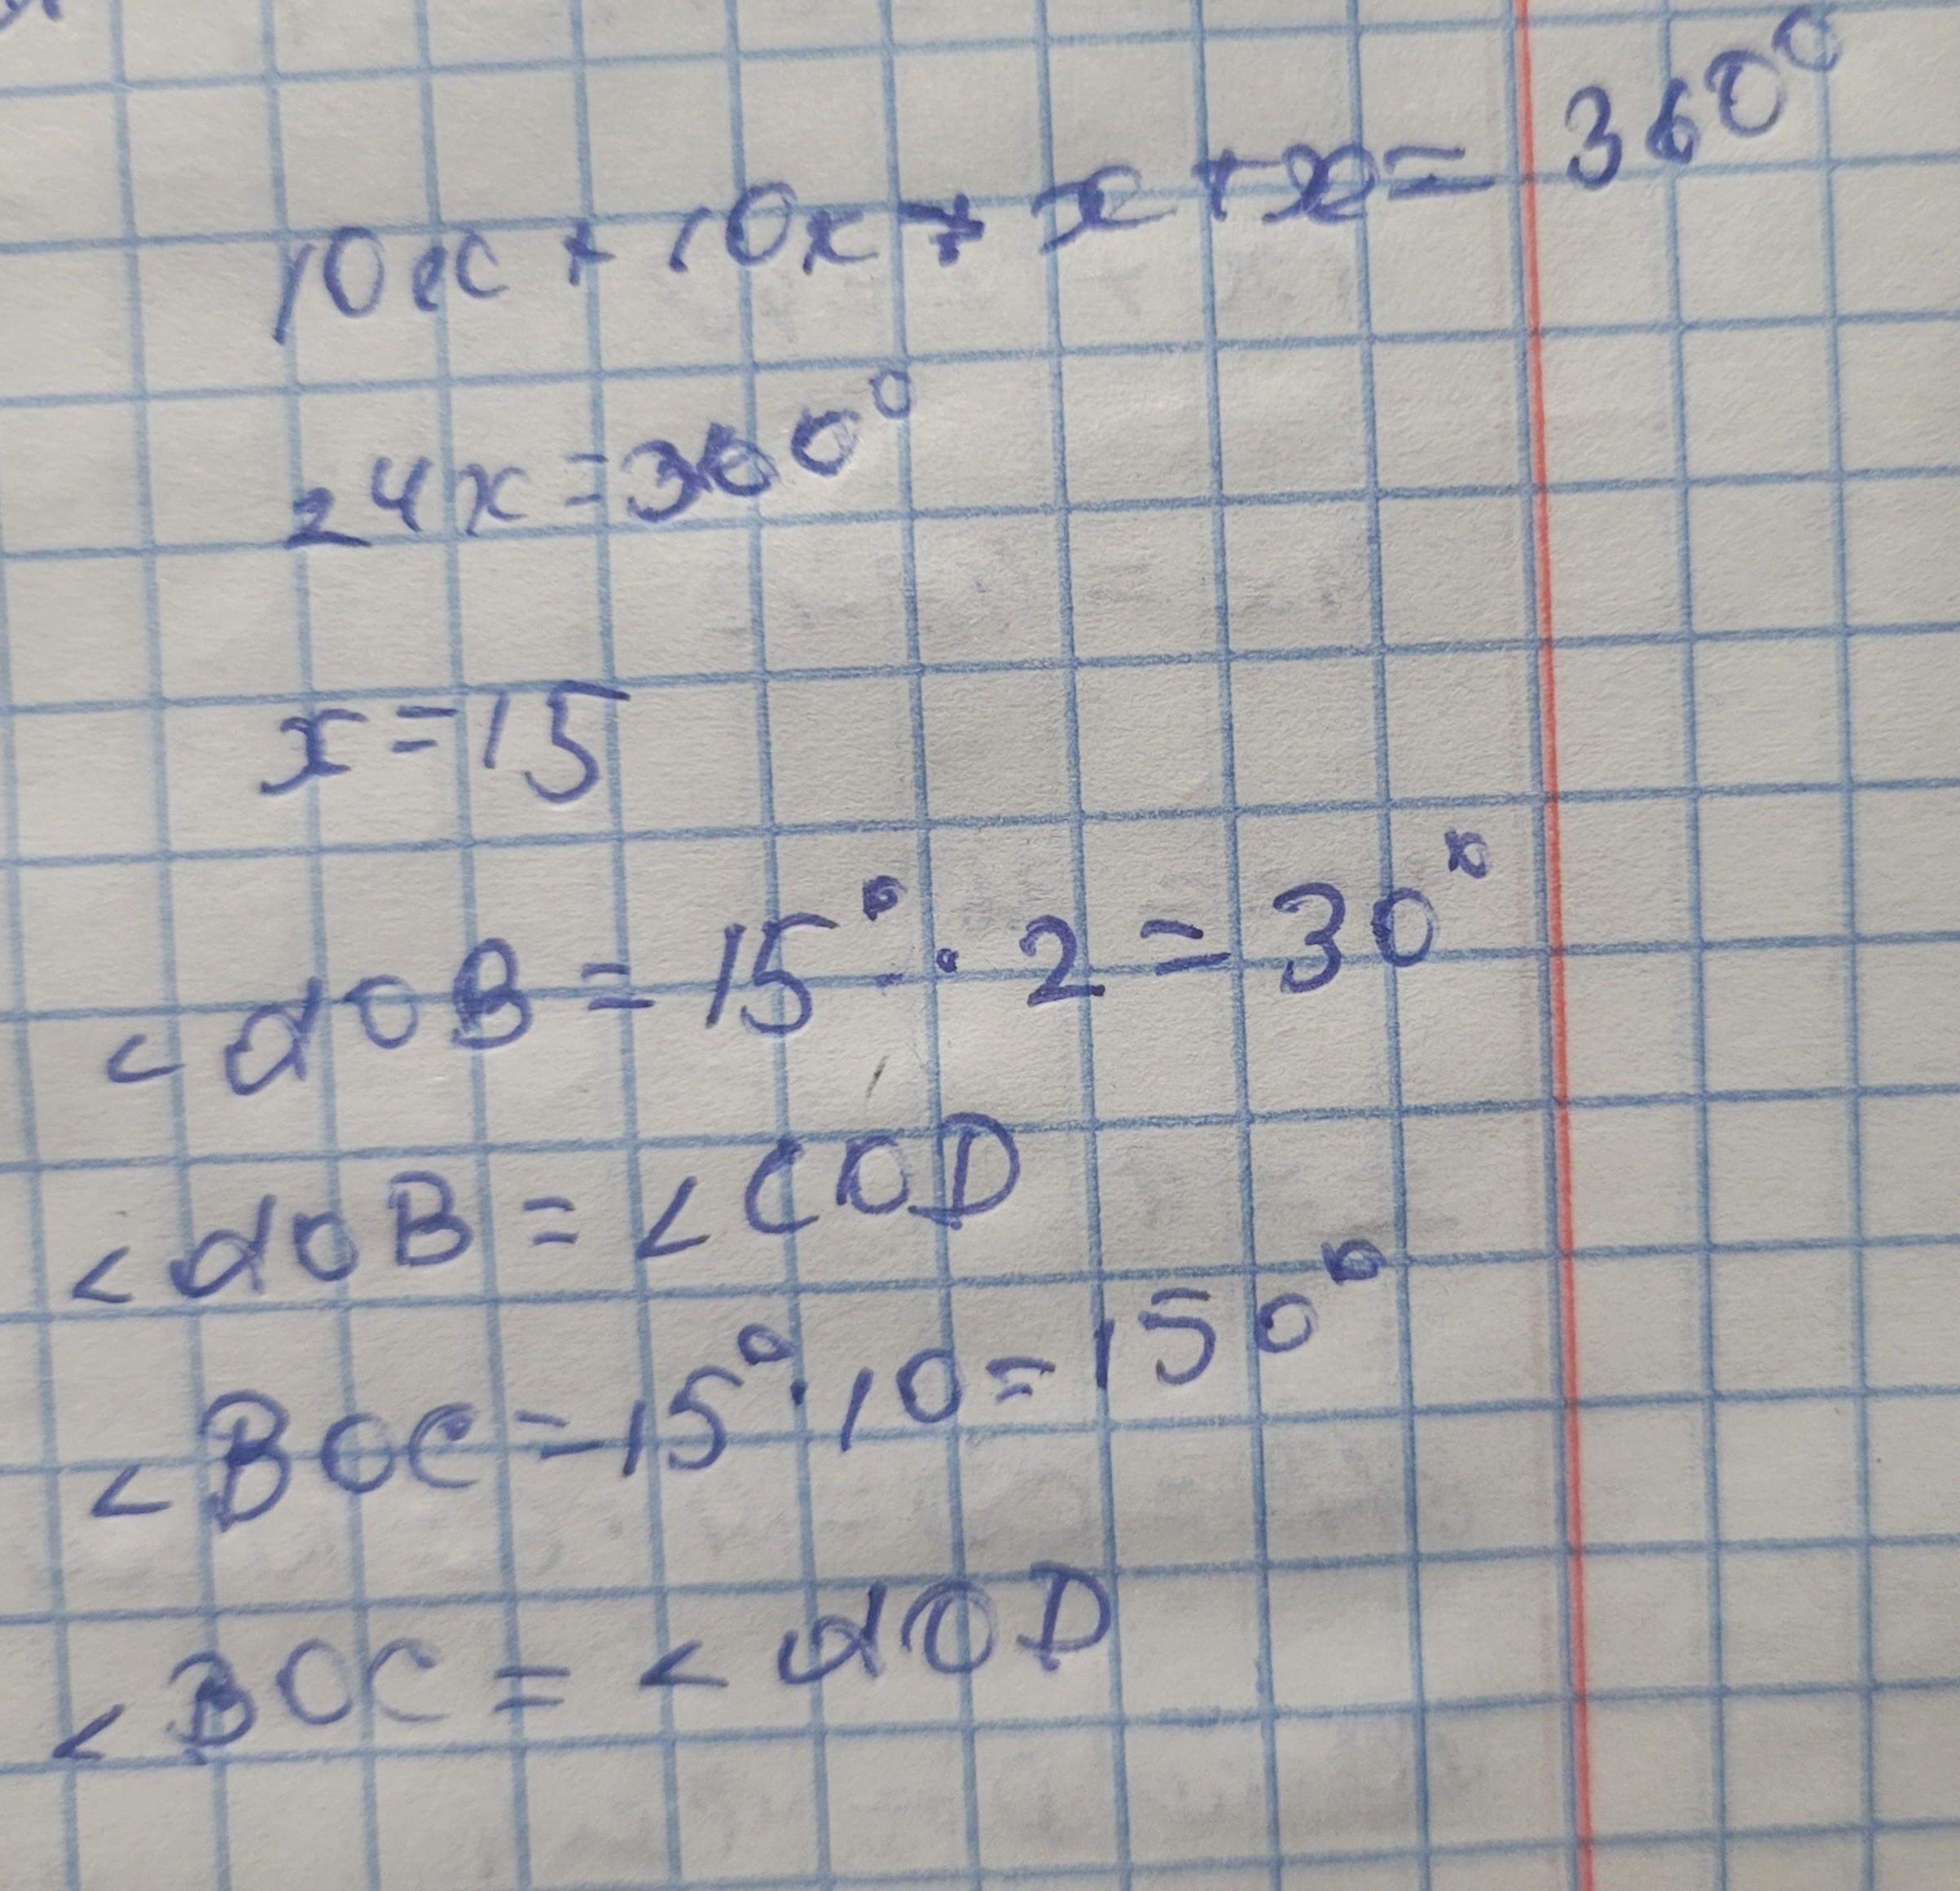 10x + 10x + x + x = 360°
24x = 360°
x = 15
< AOB = 15° · 2 = 30°
< AOB = < COD
< BOC = 15° · 10 = 150°
< BOC = < AOD